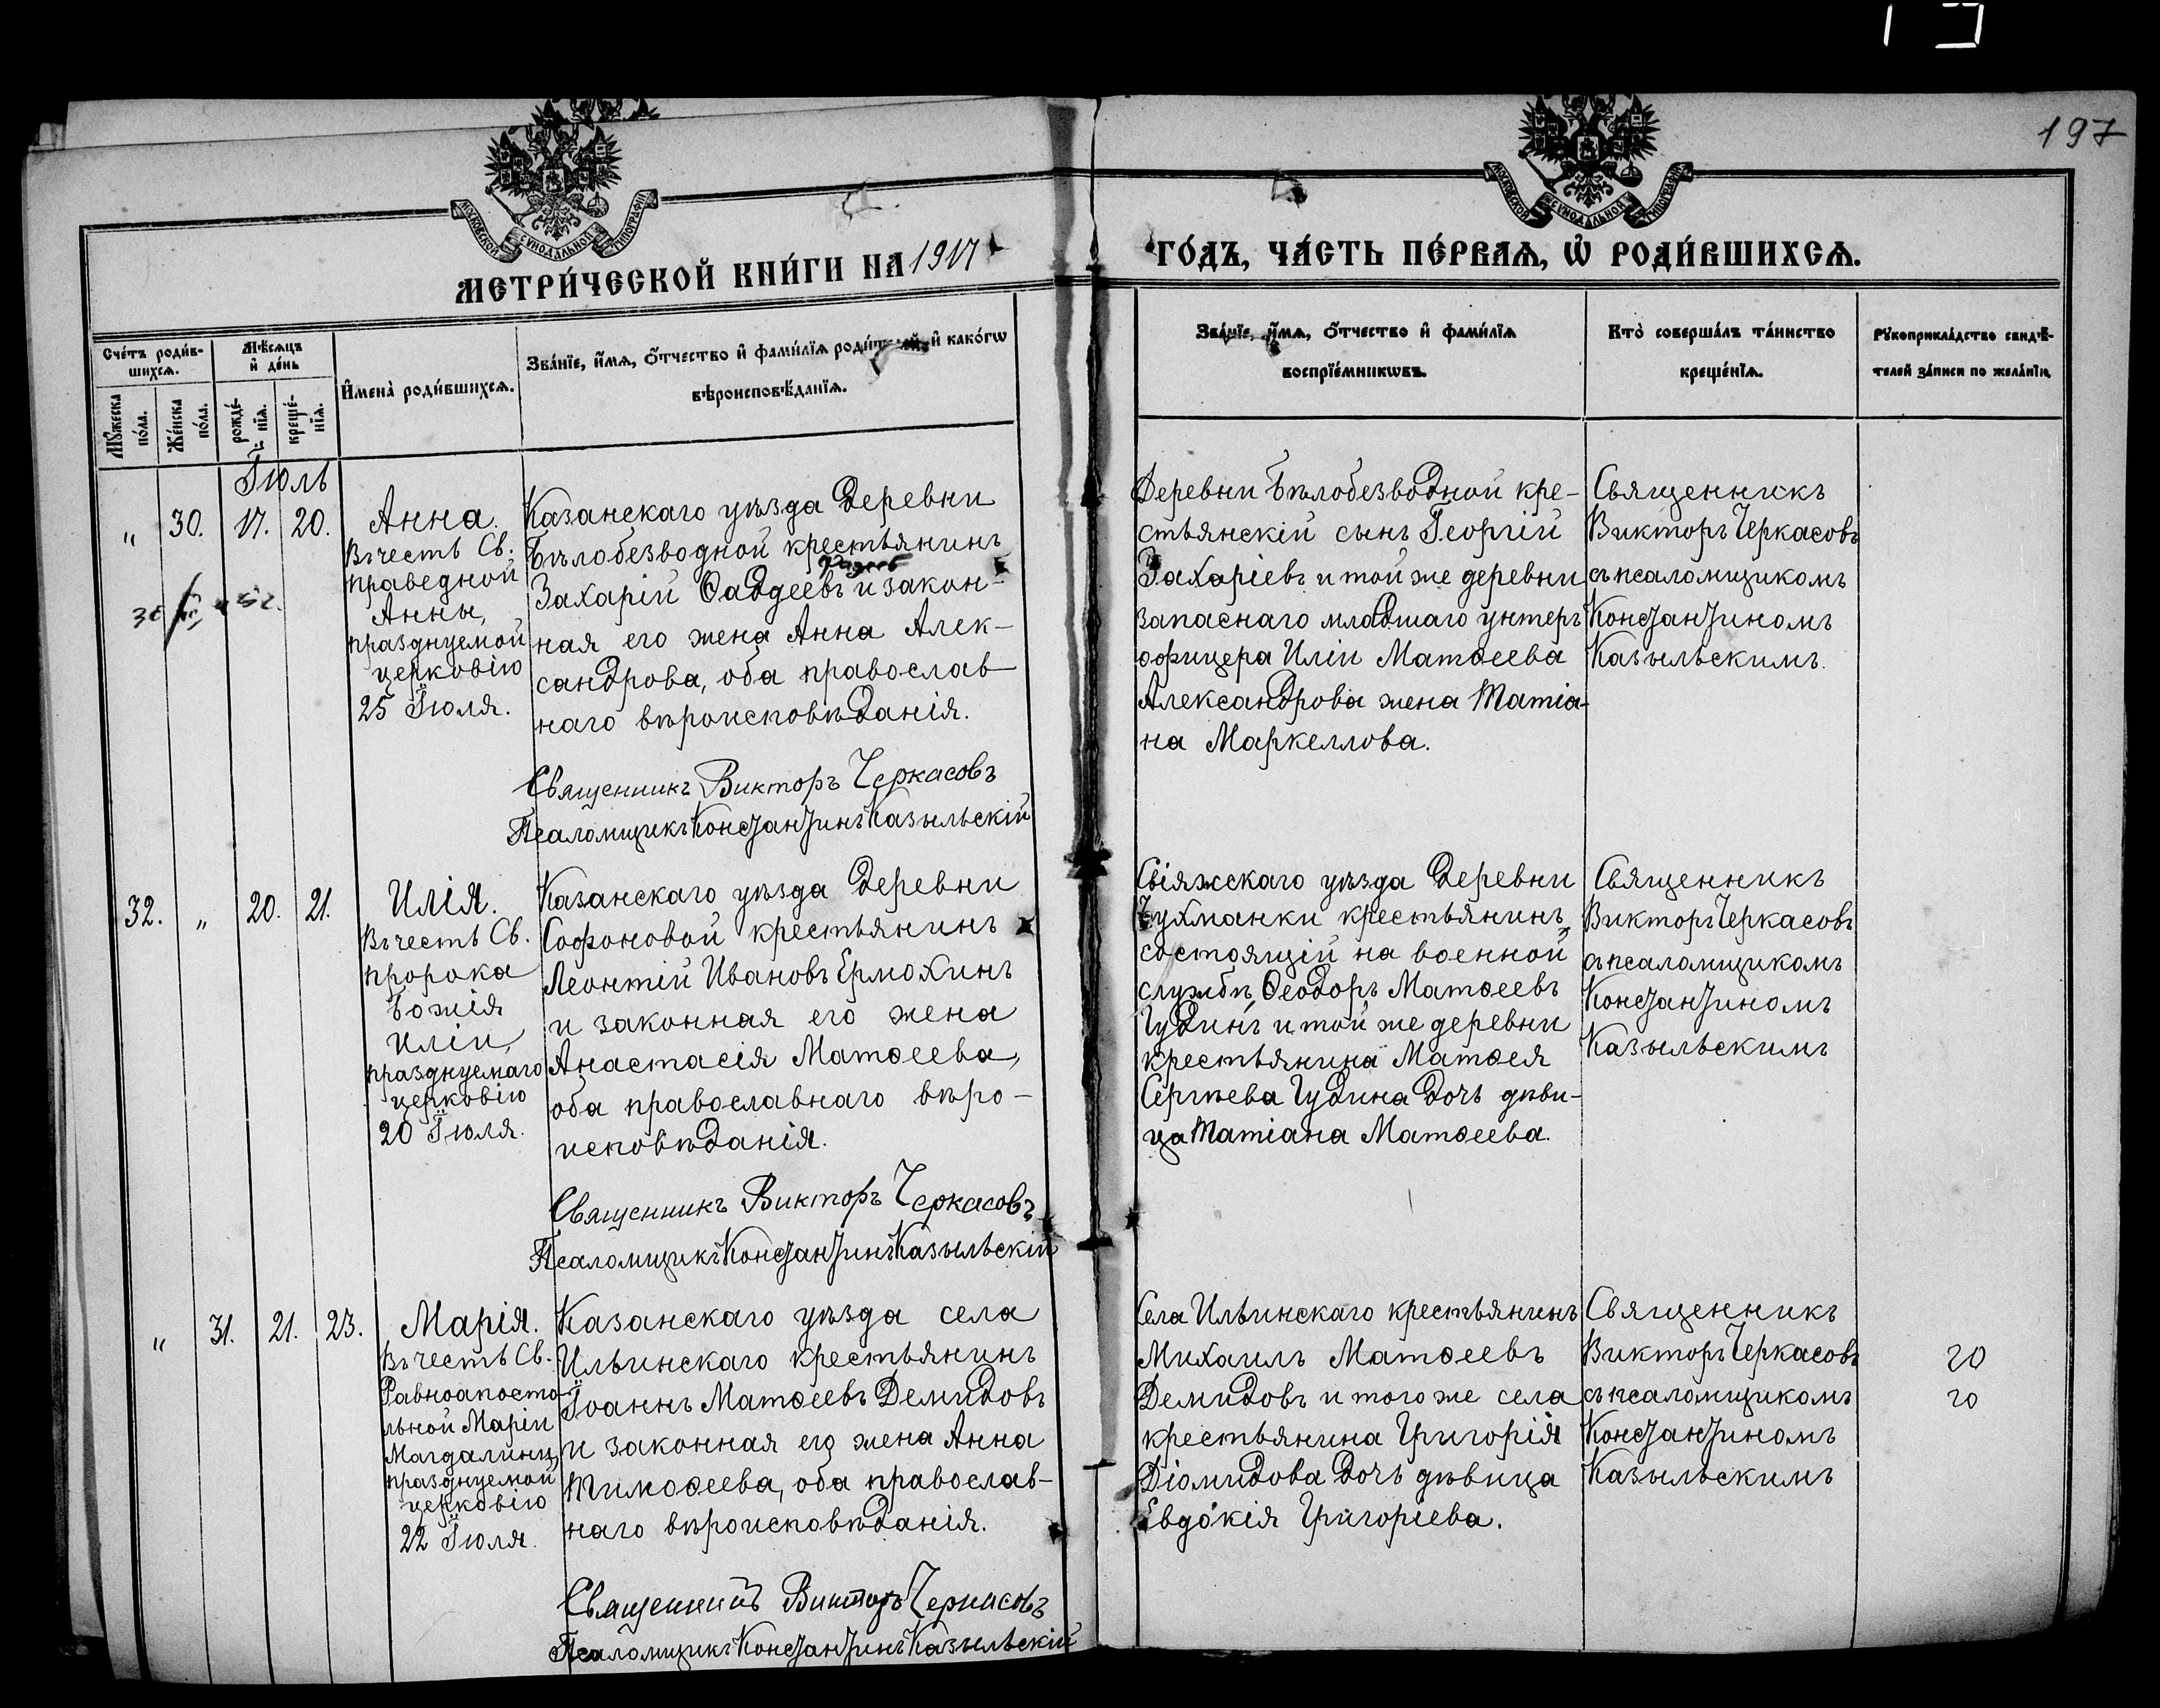 197
МОСКОВСКОЙ СѴНОДАЛЬНОЙ ТИПОГРАФІИ
МОСКОВСКОЙ СѴНОДАЛЬНОЙ ТИПОГРАФІИ
МЕТРИ́ЧЕСКОЙ КНИ́ГИ НА 1917
ГО́ДЪ, ЧА́СТЬ ПЕ́РВАѦ, Ѽ РОДИ́ВШИХСѦ.
Сче́тъ роди́в-
шихсѧ.
Мѣ́сѧцъ
и҆ де́нь
И҆мена̀ роди́вшихсѧ.
Зва́нїе, и҆́мѧ, о҆́тчество и҆ фами́лїѧ роди́телей и҆ како́гѡ
вѣроисповѣ́данїѧ.
Мꙋ́жеска
по́ла.
Же́нска
по́ла.
рожде́-
нїѧ.
креще́-
нїѧ.
Зва́нїе, и҆́мѧ, о҆́тчество и҆ фами́лїѧ
воспрїе́мникѡвъ.
Кто̀ соверша́лъ та́инство
креще́нїѧ.
Рꙋкоприкла́дство свидѣ́-
телей за́писи по жела́нїю.
Іюль
" 30. 17. 20.
Анна.
Въ честь Св.
праведной
Анны,
празднуемой
церковію
25 Іюля.
Казанскаго уѣзда деревни
Бѣлобезводной крестьянинъ
Фадеев
Захарій Ѳаддеевъ и закон-
ная его жена Анна Алек-
сандрова, оба православ-
наго вѣроисповѣданія.
Священникъ Викторъ Черкасовъ
Псаломщикъ Константинъ Казыльскій
Деревни Бѣлобезводной кре-
стьянскій сынъ Георгій
Захаріевъ и той же деревни
запаснаго младшаго унтеръ
офицера Иліи Матѳеева
Александрова жена Татіа-
на Маркеллова.
Священникъ
Викторъ Черкасовъ
съ псаломщикомъ
Константиномъ
Казыльскимъ.
32. " 20. 21.
Илія.
Въ честь Св.
пророка
Божія
Иліи,
празднуемаго
церковію
20 Іюля.
Казанскаго уѣзда деревни
Софоновой крестьянинъ
Леонтій Ивановъ Ермохинъ
и законная его жена
Анастасія Матѳеева,
оба православнаго вѣро-
исповѣданія.
Священникъ Викторъ Черкасовъ
Псаломщикъ Константинъ Казыльскій
Свіяжскаго уѣзда деревни
Чухманки крестьянинъ,
состоящій на военной
службѣ, Ѳеодоръ Матѳеевъ
Гудинъ и той же деревни
крестьянина Матѳея
Сергѣева Гудина дочь дѣви-
ца Татіана Матѳеева.
Священникъ
Викторъ Черкасовъ
съ псаломщикомъ
Константиномъ
Казыльскимъ
" 31. 21. 23.
Марія.
Въ честь Св.
Равноапосто-
льной Маріи
Магдалины,
празднуемой
церковію
22 Іюля.
Казанскаго уѣзда села
Ильинскаго крестьянинъ
Іоаннъ Матѳеевъ Демидовъ
и законная его жена Анна
Тимоѳеева, оба православ-
наго вѣроисповѣданія.
Священникъ Викторъ Черкасовъ
Псаломщикъ Константинъ Казыльскій
Села Ильинскаго крестьянинъ
Михаилъ Матѳеевъ
Демидовъ и того же села
крестьянина Григорія
Діомидова дочь дѣвица
Евдокія Григоріева.
Священникъ
Викторъ Черкасовъ
съ псаломщикомъ
Константиномъ
Казыльскимъ
20
20